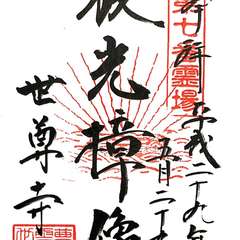 奉拜 平成二十九年
五月二十
第七番霊場
放光樟像
世尊寺